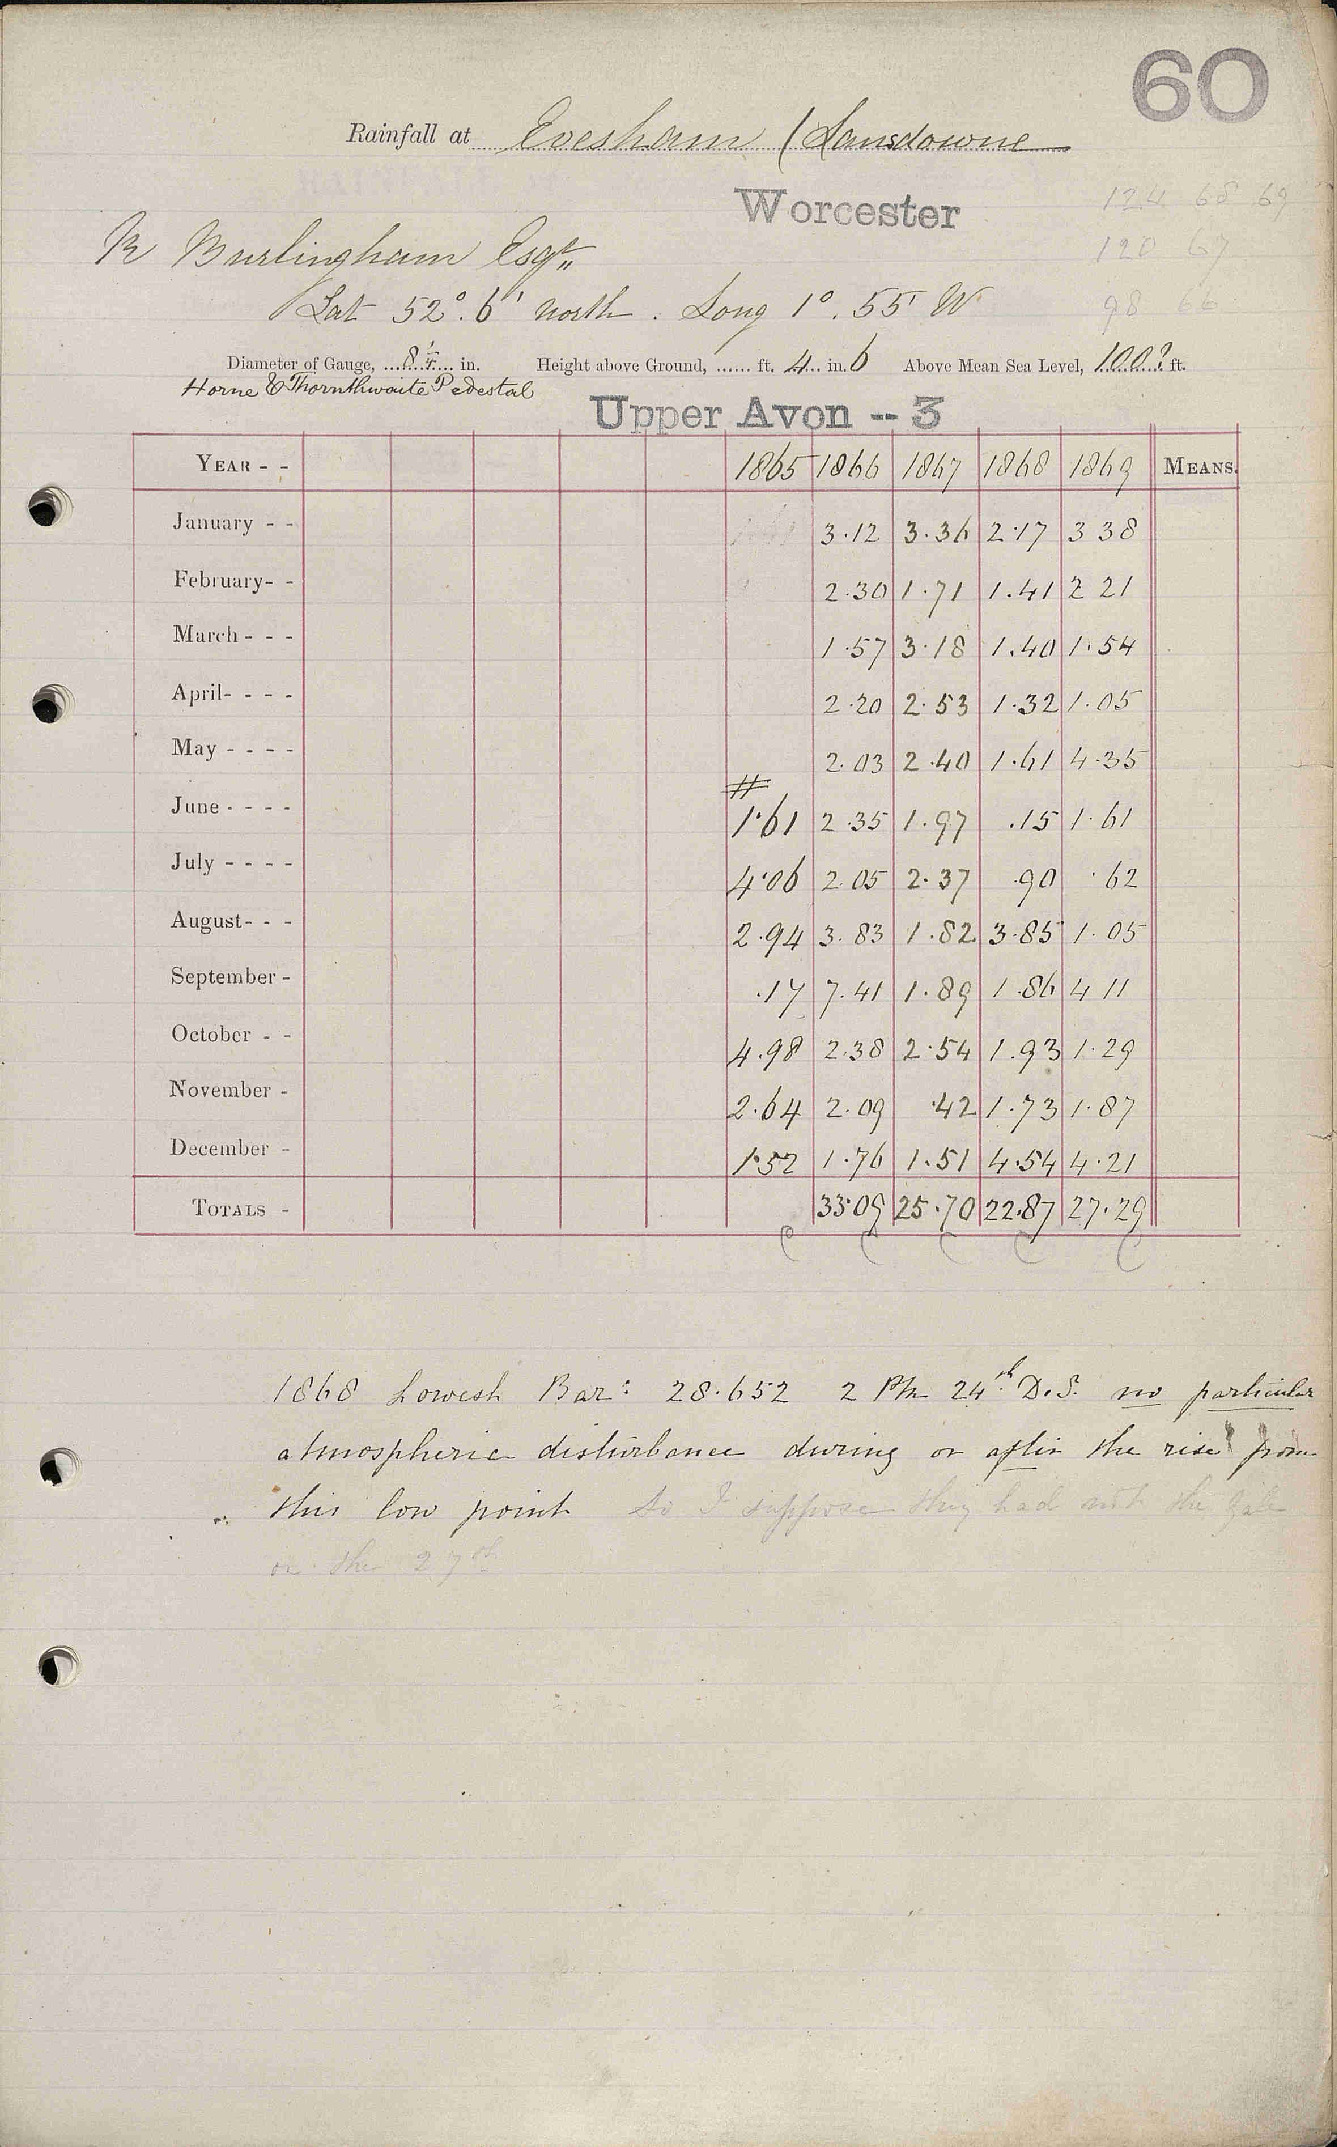 60
Rainfall at Evesham (Lansdowne
Worcester
124 68 69
R Burlingham Esqr
120 67
Lat 52°. 6' north. Long 1°. 55' W
98 66
Diameter of Gauge, 8 1/4 in. Height above Ground, ...... ft. 4 in. 6 Above Mean Sea Level, 100? ft.
Horne & Thornthwaite Pedestal
Upper Avon -- 3
YEAR - - 1865 1866 1867 1868 1869 MEANS.
January - - 3.12 3.36 2.17 3 38
February - - 2.30 1.71 1.41 2 21
March - - - 1.57 3.18 1.40 1.54
April - - - - 2.20 2.53 1.32 1.05
May - - - - 2.03 2.40 1.61 4.35
June - - - - 1.61 2.35 1.97 .15 1.61
July - - - - 4.06 2.05 2.37 .90 .62
August - - - 2.94 3.83 1.82 3.85 1.05
September - .17 7.41 1.89 1.86 4 11
October - - 4.98 2.38 2.54 1.93 1.29
November - 2.64 2.09 .42 1.73 1.87
December - 1.52 1.76 1.51 4.54 4.21
TOTALS - 33.09 25.70 22.87 27.29
1868 Lowest Bar: 28.652 2 PM 24th D.S. no particular
atmospheric disturbance during or after the rise from
this low point So I suppose they had not the gale
on the 27th